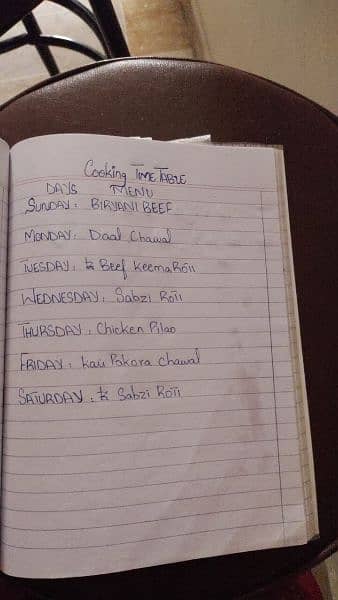 Cooking TIME TABLE
DAYS MENU
SUNDAY: BIRYANI BEEF
MONDAY: Daal Chawal
TUESDAY: Beef Keema Roti
WEDNESDAY: Sabzi Roti
THURSDAY: Chicken Pilao
FRIDAY: Kari Pakora Chawal
SATURDAY: Sabzi Roti